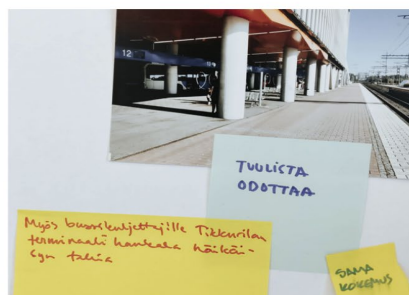 12
TUULISTA
ODOTTAA
Myös bussikuljettajille Tikkurilan
terminaali hankala näkäi-
syn takia
SAMA
KOKEMUS